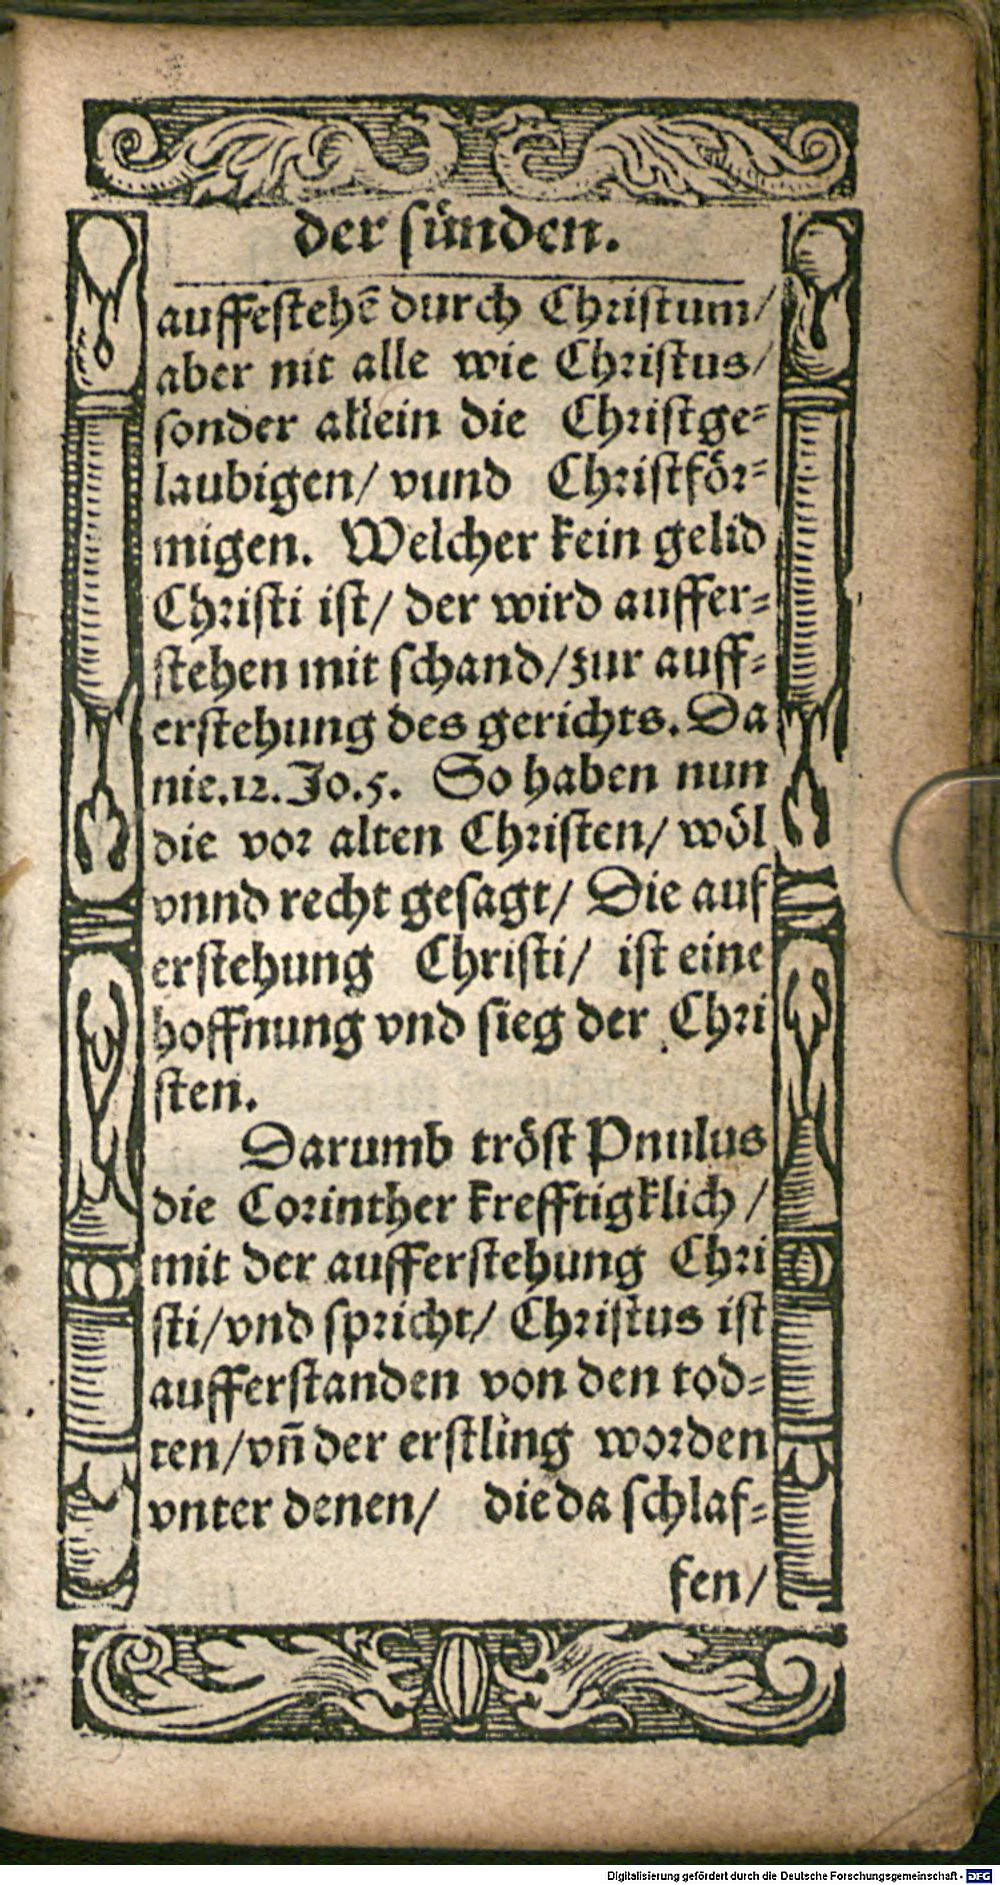 der sünden.
auffestehē durch Christum/
aber nit alle wie Christus/
sonder allein die Christge-
laubigen/ vund Christför-
migen. Welcher kein gelid
Christi ist/ der wird auffer-
stehen mit schand/zur auff-
erstehung des gerichts. Da
nie.12. Jo.5. So haben nun
die vor alten Christen/ wöl
vnnd recht gesagt/ Die auf
erstehung Christi/ ist eine
hoffnung vnd sieg der Chri
sten.
Darumb tröst Pnulus
die Corinther krefftigklich/
mit der aufferstehung Chri
sti/vnd spricht/ Christus ist
aufferstanden von den tod-
ten/vn̄ der erstling worden
vnter denen/ die da schlaf-
fen/
Digitalisierung gefördert durch die Deutsche Forschungsgemeinschaft - DFG